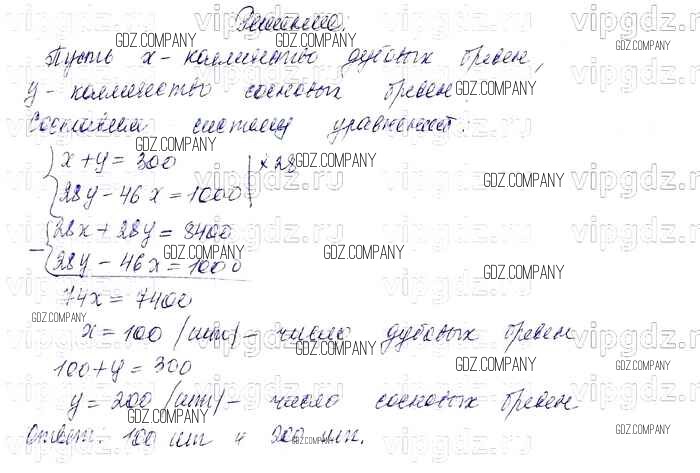 Решение.
Пусть x - колличество дубовых бревен,
y - колличество сосновых бревен.
Составим систему уравнений:
{ x + y = 300 | × 28
{ 28y - 46x = 1000
- { 28x + 28y = 8400
{ 28y - 46x = 1000
74x = 7400
x = 100 (шт) - число дубовых бревен
100 + y = 300
y = 200 (шт) - число сосновых бревен
Ответ: 100 шт и 200 шт.
GDZ.COMPANY
vipgdz.ru